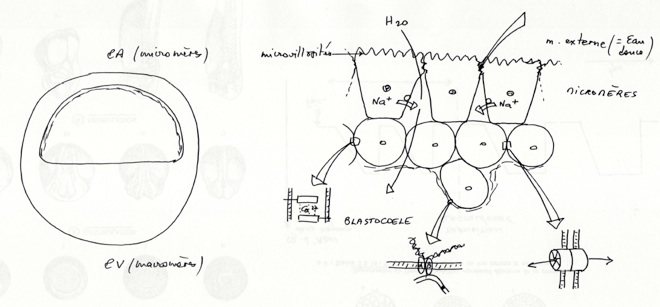 PA (micromères)
PV (macromères)
H2O
microvillosités
m. externe (= Eau
douce)
MICROMÈRES
Na+
Na+
Ca++
BLASTOCOELE